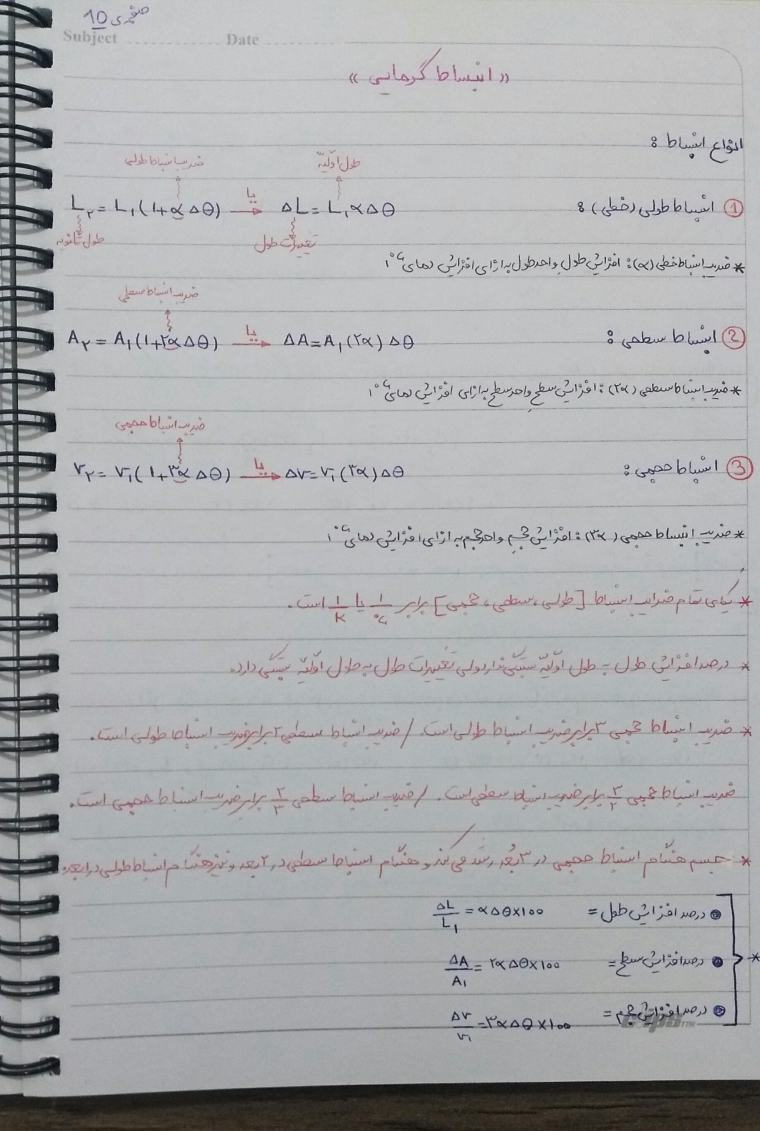 صفحه‌ی 10
Subject Date
«انبساط گرمایی»
انواع انبساط :
ضریب انبساط طولی طول اولیّه
① انبساط طولی (خطی) : L₂ = L₁(1+αΔθ) یا ΔL = L₁αΔθ
طول ثانویه تغییرات طول
* ضریب انبساط خطی (α) : افزایش طولِ واحد طول به ازای افزایش دمای ۱°C
ضریب انبساط سطحی
② انبساط سطحی : A₂ = A₁(1+۲αΔθ) یا ΔA = A₁(۲α)Δθ
* ضریب انبساط سطحی (۲α) : افزایش سطحِ واحد سطح به ازای افزایش دمای ۱°C
ضریب انبساط حجمی
③ انبساط حجمی : V₂ = V₁(1+۳αΔθ) یا ΔV = V₁(۳α)Δθ
* ضریب انبساط حجمی (۳α) : افزایش حجمِ واحد حجم به ازای افزایش دمای ۱°C
* یکای تمام ضرایب انبساط [طولی، سطحی، حجمی] برابر ۱/°C یا ۱/K است.
* درصد افزایش طول به طول اولیّه بستگی ندارد ولی تغییرات طول به طول اولیّه بستگی دارد.
* ضریب انبساط حجمی ۳ برابر ضریب انبساط طولی است. / ضریب انبساط سطحی ۲ برابر ضریب انبساط طولی است.
ضریب انبساط حجمی ۳/۲ برابر ضریب انبساط سطحی است. / ضریب انبساط سطحی ۲/۳ برابر ضریب انبساط حجمی است.
* جسم هنگام انبساط حجمی در ۳ بُعد رشد می کند و هنگام انبساط سطحی در ۲ بعد و نیز هنگام انبساط طولی در ۱ بعد.
● درصد افزایش طول = ΔL/L₁ = αΔθ×100
* ● درصد افزایش سطح = ΔA/A₁ = ۲αΔθ×100
● درصد افزایش حجم = ΔV/V₁ = ۳αΔθ×100